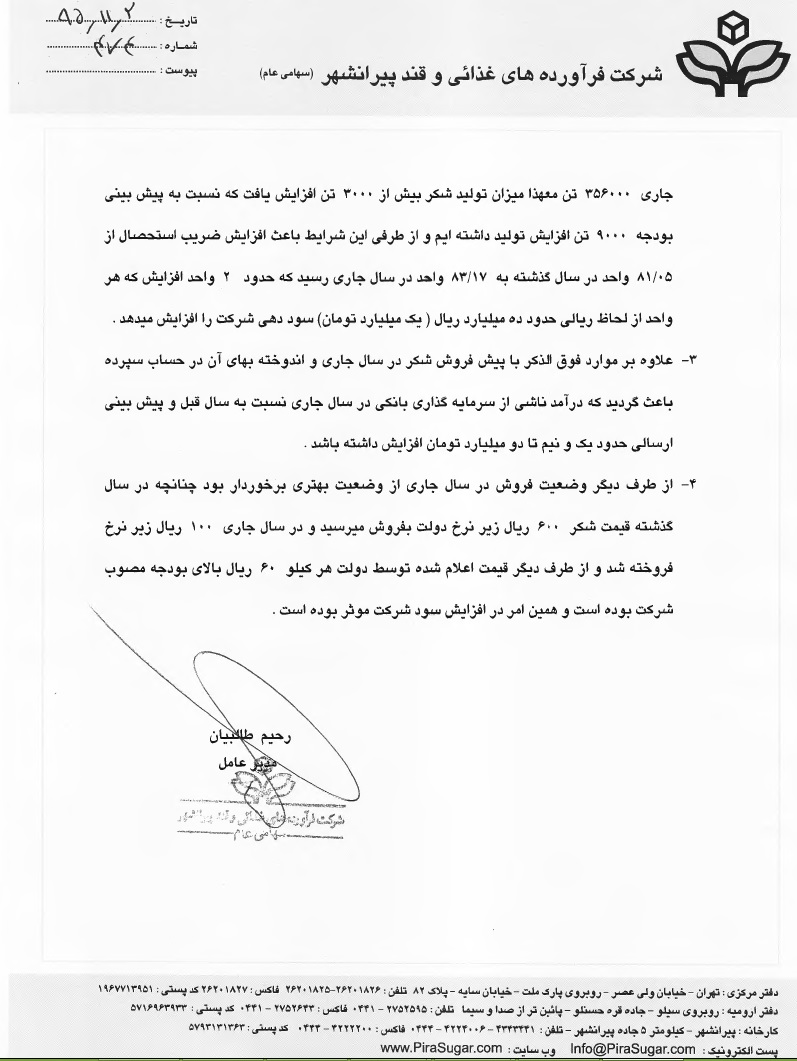 تاریخ : ۸۵/۱۱/۲
شماره : ۴۷۴
پیوست :
شرکت فرآورده های غذائی و قند پیرانشهر (سهامی عام)
جاری ۳۵۶۰۰۰ تن معهذا میزان تولید شکر بیش از ۳۰۰۰ تن افزایش یافت که نسبت به پیش بینی
بودجه ۹۰۰۰ تن افزایش تولید داشته ایم و از طرفی این شرایط باعث افزایش ضریب استحصال از
۸۱/۰۵ واحد در سال گذشته به ۸۳/۱۷ واحد در سال جاری رسید که حدود ۲ واحد افزایش که هر
واحد از لحاظ ریالی حدود ده میلیارد ریال ( یک میلیارد تومان) سود دهی شرکت را افزایش میدهد .
۳- علاوه بر موارد فوق الذکر با پیش فروش شکر در سال جاری و اندوخته بهای آن در حساب سپرده
باعث گردید که درآمد ناشی از سرمایه گذاری بانکی در سال جاری نسبت به سال قبل و پیش بینی
ارسالی حدود یک و نیم تا دو میلیارد تومان افزایش داشته باشد .
۴- از طرف دیگر وضعیت فروش در سال جاری از وضعیت بهتری برخوردار بود چنانچه در سال
گذشته قیمت شکر ۶۰۰ ریال زیر نرخ دولت بفروش میرسید و در سال جاری ۱۰۰ ریال زیر نرخ
فروخته شد و از طرف دیگر قیمت اعلام شده توسط دولت هر کیلو ۶۰ ریال بالای بودجه مصوب
شرکت بوده است و همین امر در افزایش سود شرکت موثر بوده است .
رحیم طالبیان
مدیر عامل
شرکت فرآورده های غذائی و قند پیرانشهر
سهامی عام
دفتر مرکزی : تهران - خیابان ولی عصر - روبروی پارک ملت - خیابان سایه - پلاک ۸۲ تلفن : ۲۶۲۰۱۸۲۶-۲۶۲۰۱۸۲۵ فاکس : ۲۶۲۰۱۸۲۷ کد پستی : ۱۹۶۷۷۱۳۹۵۱
دفتر ارومیه : روبروی سیلو - جاده قره حسنلو - پائین تر از صدا و سیما تلفن : ۲۷۵۲۵۹۵ - ۰۴۴۱ فاکس : ۲۷۵۲۶۴۳ - ۰۴۴۱ کد پستی : ۵۷۱۶۹۶۳۹۳۳
کارخانه : پیرانشهر - کیلومتر ۵ جاده پیرانشهر - تلفن : ۴۳۴۳۴۴۱ - ۴۲۲۴۰۰۶ - ۰۴۴۴ فاکس : ۴۲۲۲۲۰۰ - ۰۴۴۴ کد پستی : ۵۷۹۳۱۳۱۳۶۳
پست الکترونیک : Info@PiraSugar.com وب سایت : www.PiraSugar.com